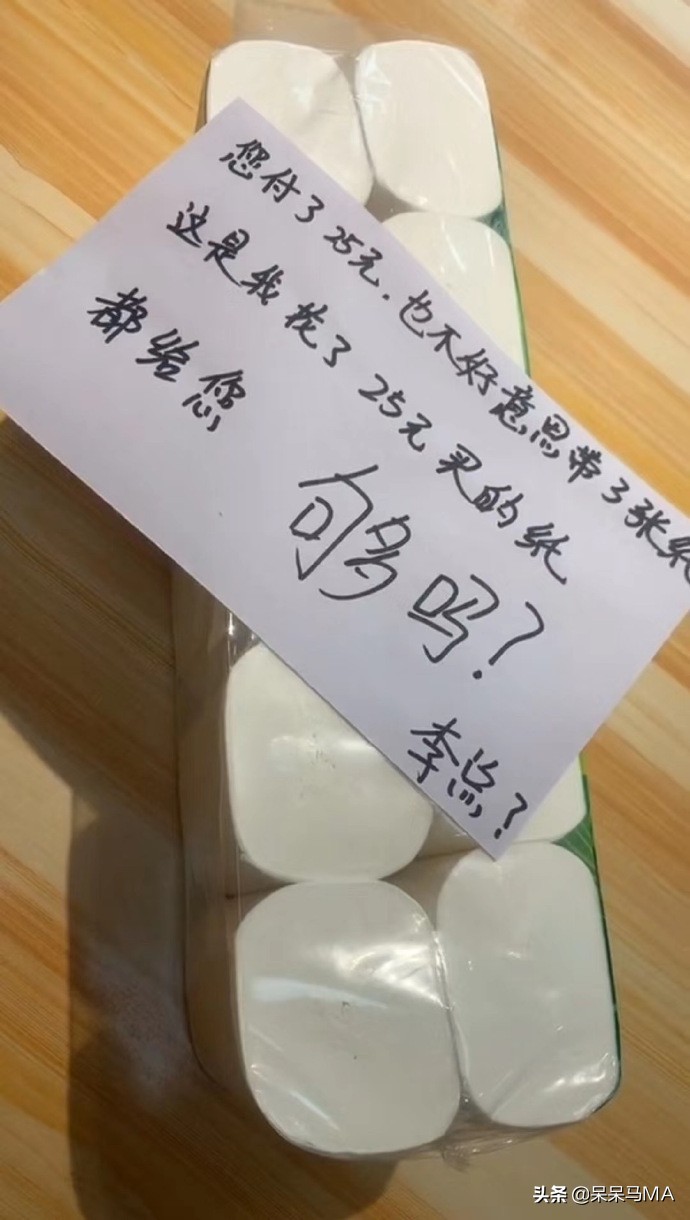 您付了25元.也不好意思带了张纸
这是我花了25元买的纸
都给您
够吗?
李总?
头条 @呆呆马MA